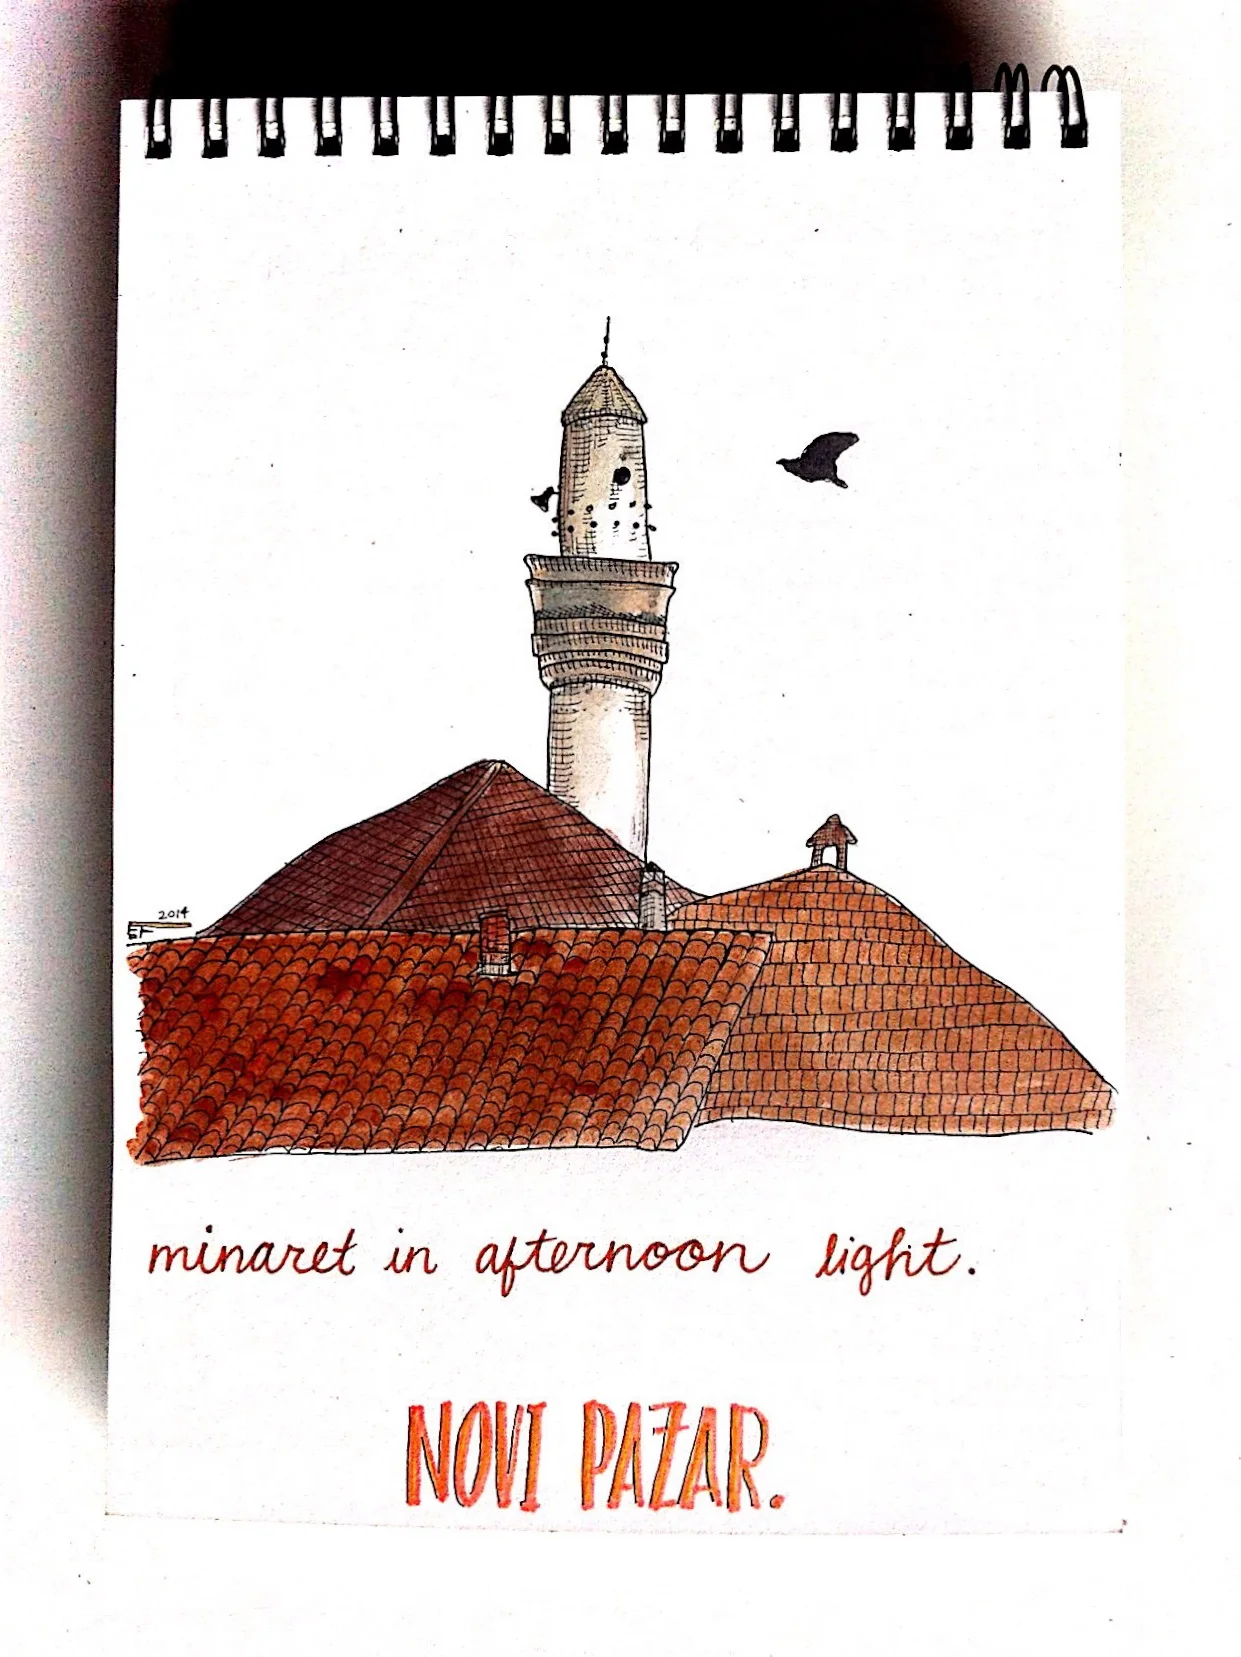 2014
EF
minaret in afternoon light.
NOVI PAZAR.